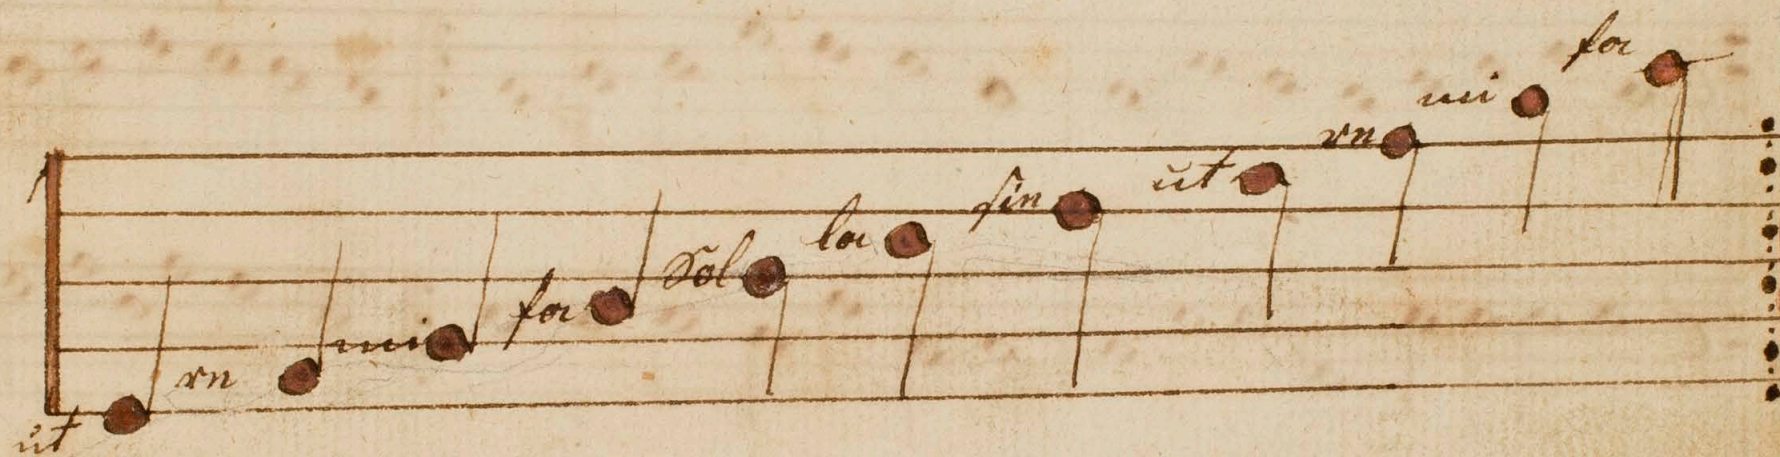 ut re mi fa Sol la sie ut re mi fa